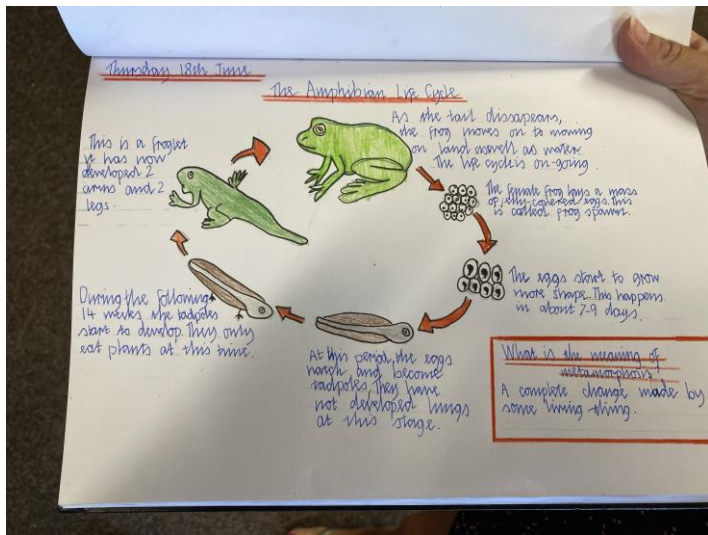 Thursday 18th June
The Amphibian Life Cycle
As the tail dissapears,
the frog moves on to moving
on land aswell as water.
The life cycle is on-going.
The female frog lays a mass
of jelly-covered eggs. This
is called frog spawn.
The eggs start to grow
more shape. This happens
in about 7-9 days.
At this period, the eggs
hatch and become
tadpoles. They have
not developed lungs
at this stage.
During the following
14 weeks the tadpoles
start to develop. They only
eat plants at this time.
This is a froglet
it has now
developed 2
arms and 2
legs.
What is the meaning of
metamorphosis
A complete change made by
some living thing.